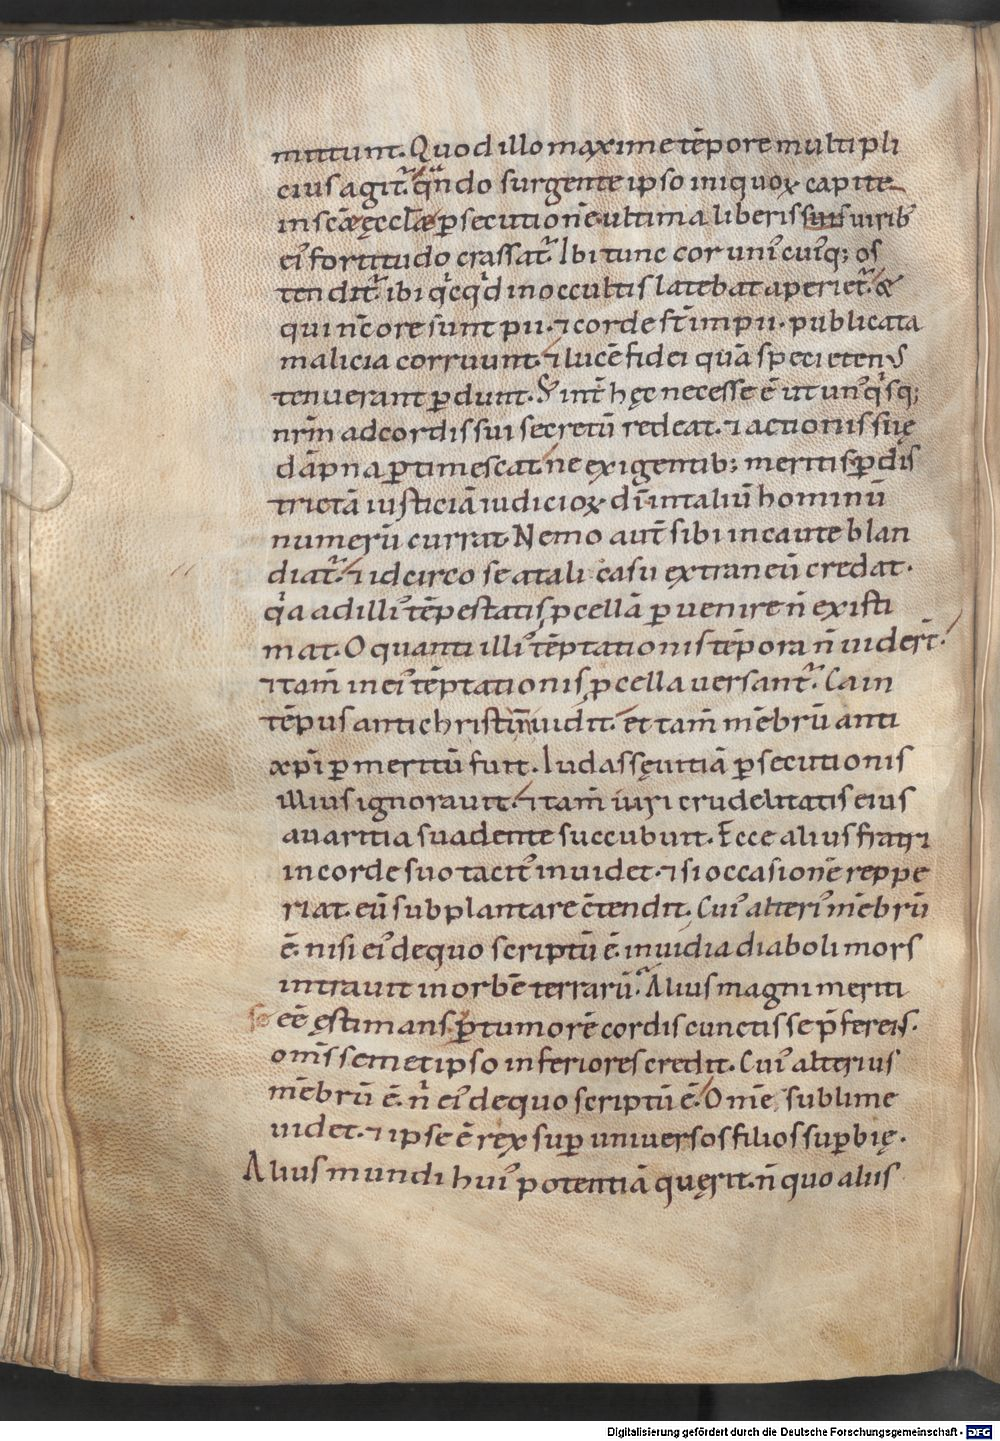 mittunt. Quod illo maxime tēpore multipli
cius agit᷑. qn̄do surgente ipso iniquoꝝ capite
in scāę ęcclæ ꝑsecutionē ultima liberis suis uirib;
ei᾿ fortitudo crassat᷑. Ibi tunc cor uni᾿cui᾿q; os
tendit᷑. ibi qͥcqͥd in occultis latebat aperiet᷑. &
qui nc̄ ore sunt pii. ⁊ corde st̄ impii. publicata
malicia corruunt. ⁊ lucē fidei quā specietens
tenuerant ꝑdunt. S; int᷑ hęc necesse ē ut un᾿qͥsq;
nrm̄ ad cordis sui secretū redeat. ⁊ actionis suę
dāpna ꝑtimescat. ne exigentib; meritis ꝑ dis
trictā iusticiā iudicioꝝ dī in taliū hominū
numerū currat. Nemo aut̄ sibi incaute blan
diat᷑. ⁊ idcirco se a tali casu extraneū credat.
qͥa ad illi᾿ tēpestatis ꝓcellā ꝑuenire n̄ existi
mat. O quanti illi᾿ tēptationis tēpora n̄ uidert̄.
⁊ tam̄ in ei᾿ tēptationis ꝓcella uersant᷑. Cain
tēpus antichristi n̄ uidit. et tam̄ mēbrū anti
xp̄i ꝑ meritū fuit. Iudas sęuitiā ꝑsecutionis
illius ignorauit. ⁊ tam̄ iuri crudelitatis eius
auaritia suadente succubuit. Ecce alius fratri
in corde suo tacit᾿ inuidet. ⁊ si occasionē reppe
riat. eū subplantare c̄tendit. Cui᾿ alteri᾿ mēbrū
ē. nisi ei᾿ de quo scriptū ē. inuidia diaboli mors
intrauit in orbē terrarū. Alius magni meriti
se eē ęstimans ꝑ tumorē cordis cunctis se p̄ferens.
om̄s semetipso inferiores credit. Cui᾿ alterius
mēbrū ē. nͥ ei᾿ de quo scriptū ē. Om̄e sublime
uidet. ⁊ ipse ē rex suꝑ uniuersos filios suꝑbię.
Alius mundi hui᾿ potentiā quęrit. n̄ quo aliis
Digitalisierung gefördert durch die Deutsche Forschungsgemeinschaft - DFG